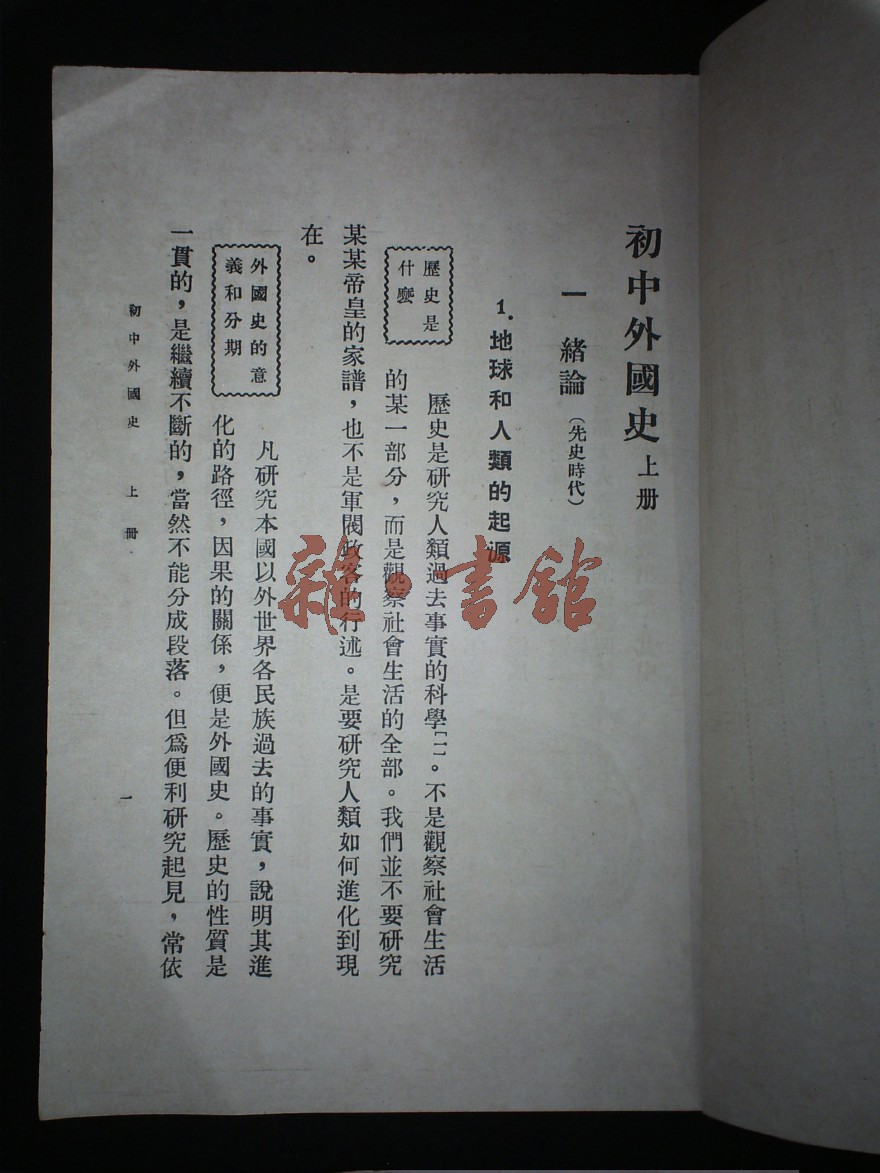 初中外國史 上册
一 緒論 (先史時代)
1. 地球和人類的起源
歷史是
什麼
歷史是研究人類過去事實的科學[一]。不是觀察社會生活
的某一部分，而是觀察社會生活的全部。我們並不要研究
某某帝皇的家譜，也不是軍閥政客的行述。是要研究人類如何進化到現
在。
外國史的意
義和分期
凡研究本國以外世界各民族過去的事實，說明其進
化的路徑，因果的關係，便是外國史。歷史的性質是
一貫的，是繼續不斷的，當然不能分成段落。但爲便利研究起見，常依
初中外國史 上册
一
雜·書館